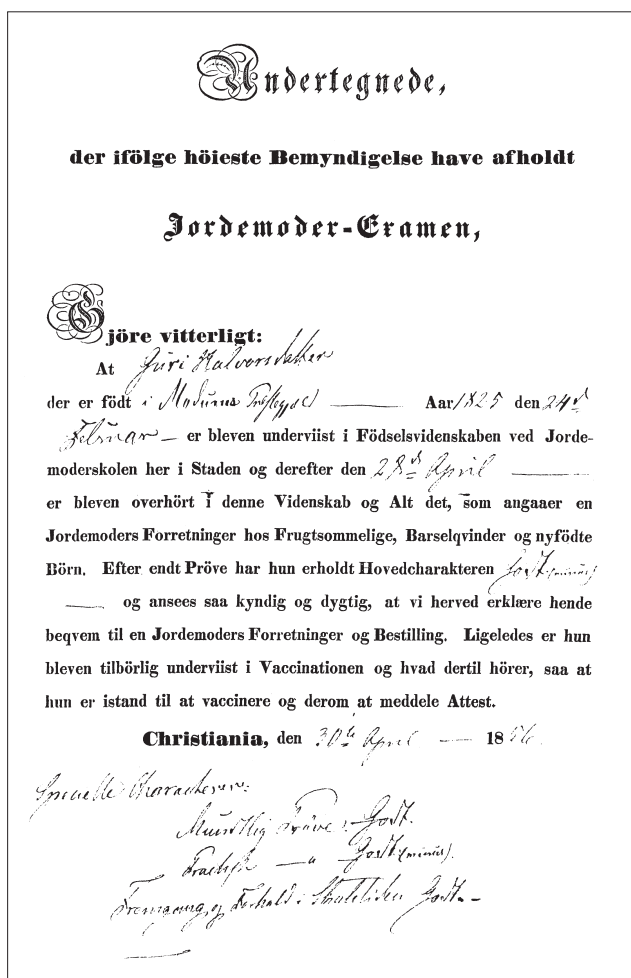 Undertegnede,
der ifölge höieste Bemyndigelse have afholdt
Jordemoder-Examen,
Gjöre vitterligt:
At Guri Halvorsdatter
der er födt i Modums Præstegjeld Aar 1825 den 24de
Februar er bleven underviist i Födselsvidenskaben ved Jorde-
moderskolen her i Staden og derefter den 28de April
er bleven overhört i denne Videnskab og Alt det, som angaaer en
Jordemoders Forretninger hos Frugtsommelige, Barselqvinder og nyfödte
Börn. Efter endt Pröve har hun erholdt Hovedcharakteren Godt (minus)
og ansees saa kyndig og dygtig, at vi herved erklære hende
beqvem til en Jordemoders Forretninger og Bestilling. Ligeledes er hun
bleven tilbörlig underviist i Vaccinationen og hvad dertil hörer, saa at
hun er istand til at vaccinere og derom at meddele Attest.
Christiania, den 30te April 1856.
Specielle Characterer:
Mundtlig Pröve: Godt.
Practisk — " Godt (minus).
Fremgang og Forhold i Skoletiden Godt. —